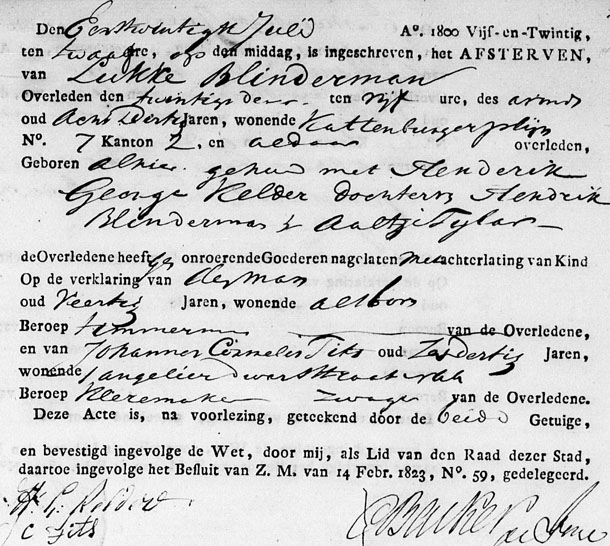 Den Een en twintigste Julij A°. 1800 Vijf-en-Twintig,
ten twaalf ure, op den middag, is ingeschreven, het AFSTERVEN,
van Lukke Blinderman
Overleden den twintigsten ten vijf ure, des avonds
oud Acht Dertig Jaren, wonende Kattenburgerplijn
N°. 7 Kanton 2, en aldaar overleden,
Geboren alhier gehuwd met Henderik
George Kelder Dochter van Hendrik
Blinderman & Aaltje Tylar
de Overledene heeft onroerende Goederen nagelaten, met achterlating van Kind
Op de verklaring van desman
oud Veertig Jaren, wonende aldaar
Beroep timmerman van de Overledene,
en van Johannes Cornelis Tits oud Zes Dertig Jaren,
wonende angelier dwarsstraat
Beroep Kleremaker Zwager van de Overledene.
Deze Acte is, na voorlezing, geteekend door de beide Getuige,
en bevestigd ingevolge de Wet, door mij, als Lid van den Raad dezer Stad,
daartoe ingevolge het Besluit van Z. M. van 14 Febr. 1823, N°. 59, gedelegeerd.
H. G. Kelder
C Tits